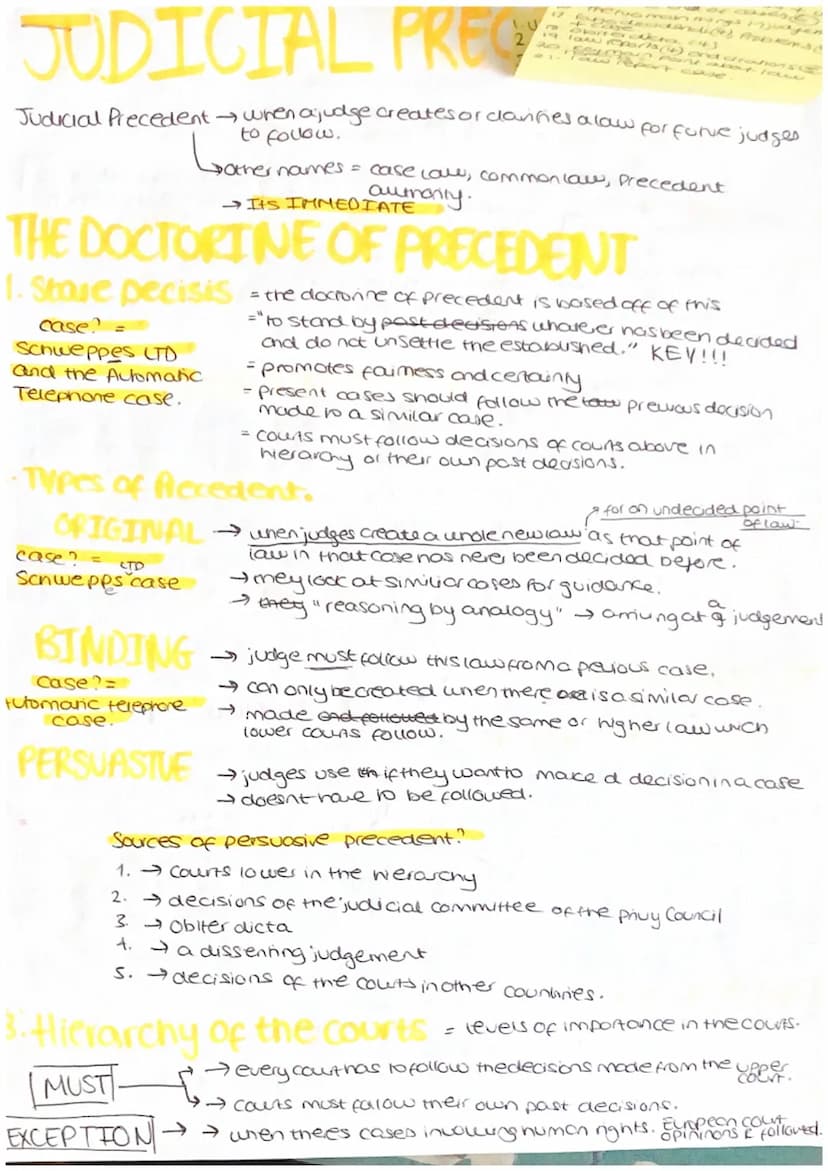 JUDICIAL PREC
1. U
2
17. ratio decidendi(4) problems
19. law reports(4) and citations
21. law report case.
Judicial Precedent → when a judge creates or clarifies a law for future judges
to follow.
↳ other names = case law, common law, precedent
authority.
→ ITS IMMEDIATE
THE DOCTORINE OF PRECEDENT
1. Stare Decisis = the doctorine of precedent is based off of this
case? =
Schweppes LTD
and the Automatic
Telephone case.
= "to stand by past decisions whatever has been decided
and do not unsettle the established." KEY!!!
= promotes fairness and certainty
= present cases should follow the law previous decision
made to a similar case.
= courts must follow decisions of courts above in
hierarchy or their own past decisions.
· Types of Precedent.
↗ for an undecided point
of law.
ORIGINAL → when judges create a whole new law as that point of
law in that case has never been decided before.
case? =
Schwepps LTD case
e
→ they look at similiar cases for guidance.
→ they "reasoning by analogy" → arriving at a judgement
BINDING → judge must follow this law from a pevious case.
case? =
Automatic telephone
case.
→ can only be created when there is a similar case.
→ made and followed by the same or higher law which
lower courts follow.
PERSUASIVE → judges use if they want to make a decision in a case
→ doesnt have to be followed.
Sources of persuasive precedent?
1. → courts lower in the hierarchy
2. → decisions of the judicial committee of the privy Council
3. → obiter dicta
4. → a dissenting judgement
5. → decisions of the courts in other countries.
3. Hierarchy of the courts = levels of importance in the courts.
MUST → every court has to follow the decisions made from the upper
court.
→ courts must follow their own past decisions.
EXCEPTION → → when theres cases involving human rights. European court
opininons r followed.